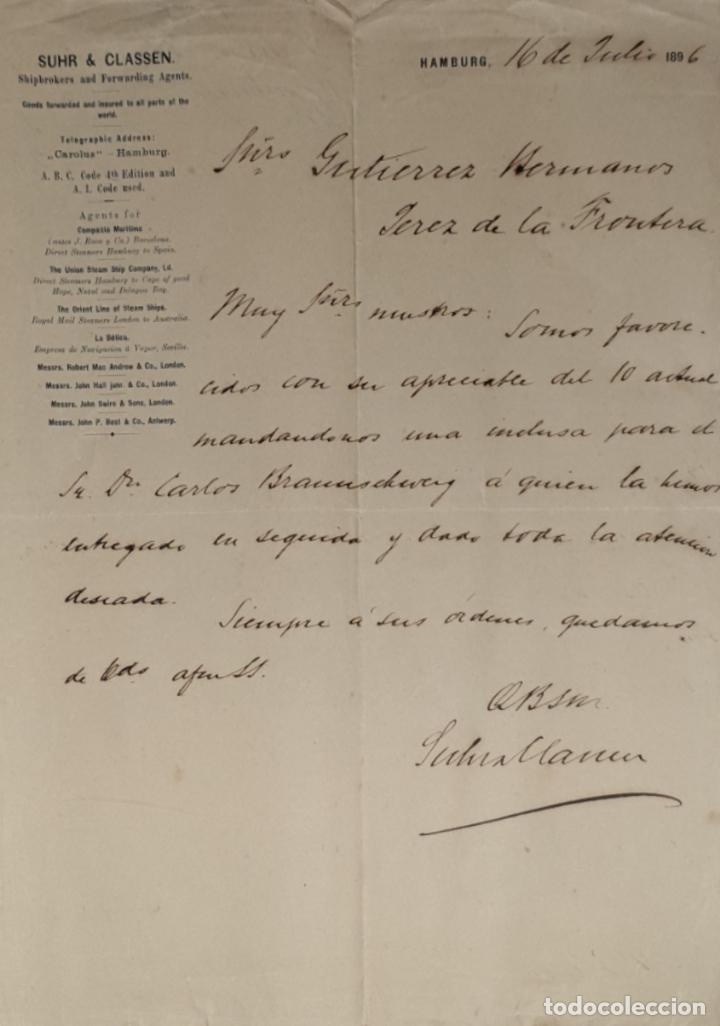 SUHR & CLASSEN.
Shipbrokers and Forwarding Agents.
Goods forwarded and insured to all parts of the
world.
Telegraphic Address:
„Carolus" - Hamburg.
A. B. C. Code 4th Edition and
A. I. Code used.
Agents for
Compañia Maritima
(antes J. Roca y Co.) Barcelona.
Direct Steamers Hamburg to Spain.
The Union Steam Ship Company, Ld.
Direct Steamers Hamburg to Cape of good
Hope, Natal and Delagoa Bay.
The Orient Line of Steam Ships.
Royal Mail Steamers London to Australia.
La Bética.
Empresa de Navigacion á Vapor, Sevilla.
Messrs. Robert Mac Andrew & Co., London.
Messrs. John Hall junr. & Co., London.
Messrs. John Swire & Sons, London.
Messrs. John P. Best & Co., Antwerp.
HAMBURG, 16 de Julio 1896
Sñrs Gutierrez Hermanos
Jerez de la Frontera.
Muy Sñrs nuestros: Somos favore-
cidos con su apreciable del 10 actual
mandandonos una inclusa para el
Sr. Dn. Carlos Braunschweig á quien la hemos
entregado en seguida y dado toda la atencion
deseada.
Siempre á sus órdenes, quedamos
de Vds afmSS.
QBSM.
Suhr & Classen
todocoleccion